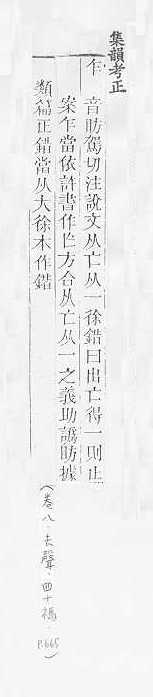 集韻考正
乍 音昈駕切注說文从亡从一徐鍇曰出亡得一則止
案乍當依許書作亾方合从亡从一之義助譌昈據
類篇正錯當从大徐本作鍇
(卷八．去聲．四十禡．P.665)